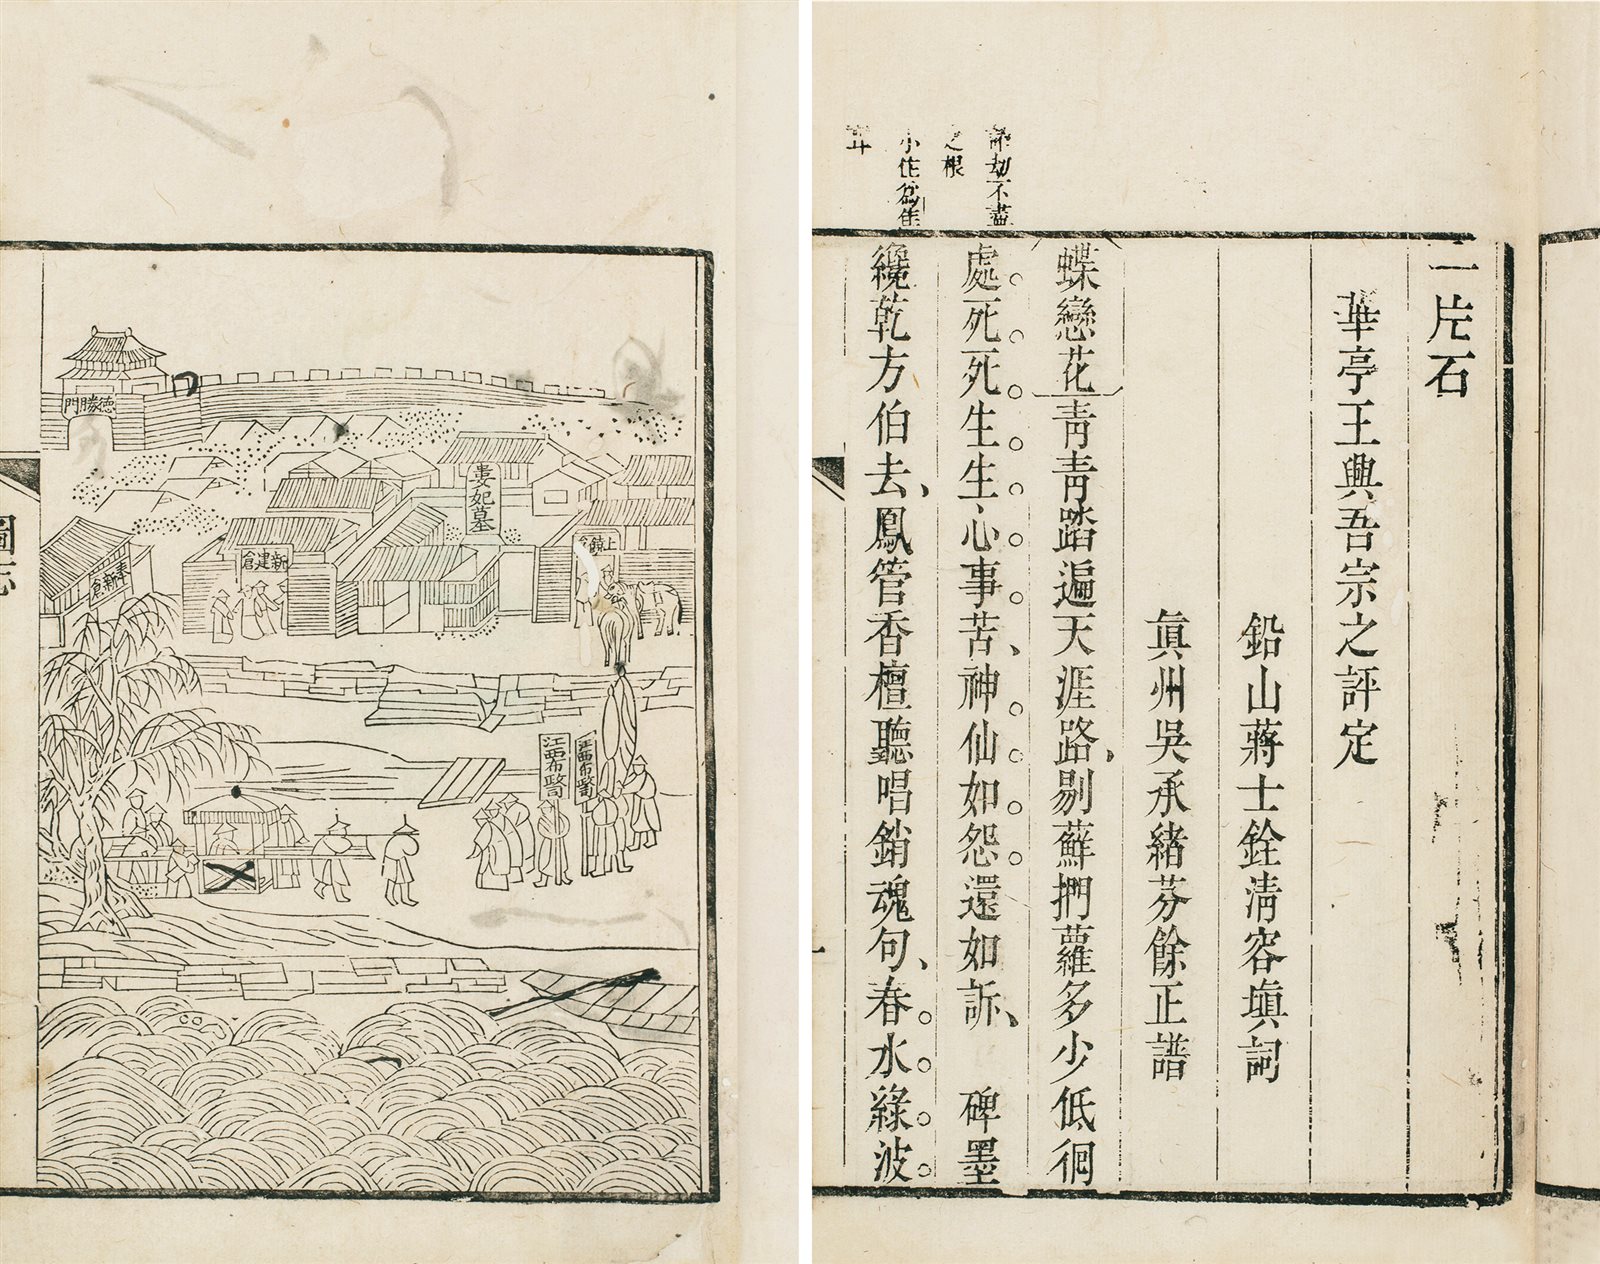 一片石
華亭王興吾宗之評定
鉛山蔣士銓淸容塡詞
眞州吳承緒芬餘正譜
蝶戀花靑靑踏遍天涯路、剔蘚捫蘿多少低徊
處。死。死。生。生。心。事。苦、神。仙。如。怨。還如訴、 碑墨
纔乾方伯去、鳳管香檀聽唱銷魂句、春。水。綠。波。
劫不盡
之根
小作
德勝門
婁妃墓
上饒倉
新建倉
奉新倉
江西布政司
江西布政司
圖志